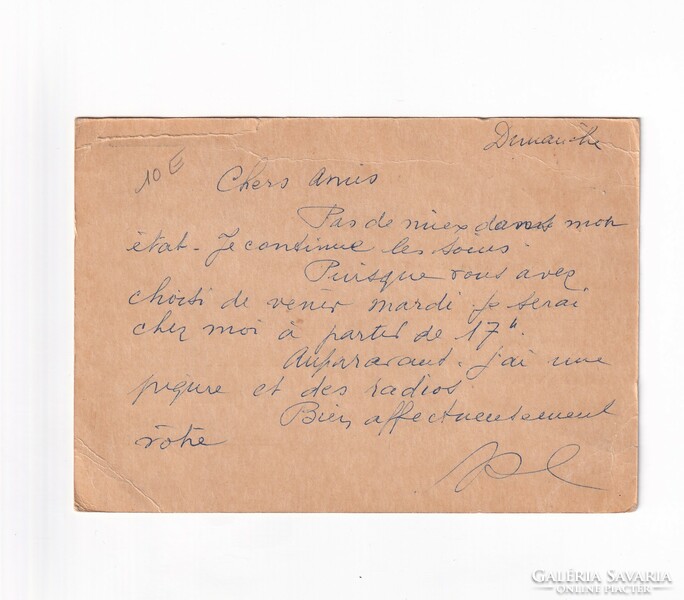 Dimanche
10 E
Chers Amis
Pas de mieux dans mon
état. Je continue les soins.
Puisque vous avez
choisi de venir mardi je serai
chez moi à partir de 17h.
Auparavant j'ai une
piqure et des radios.
Bien affectueusement
vôtre
GALÉRIA SAVARIA
ONLINE PIACTÉR